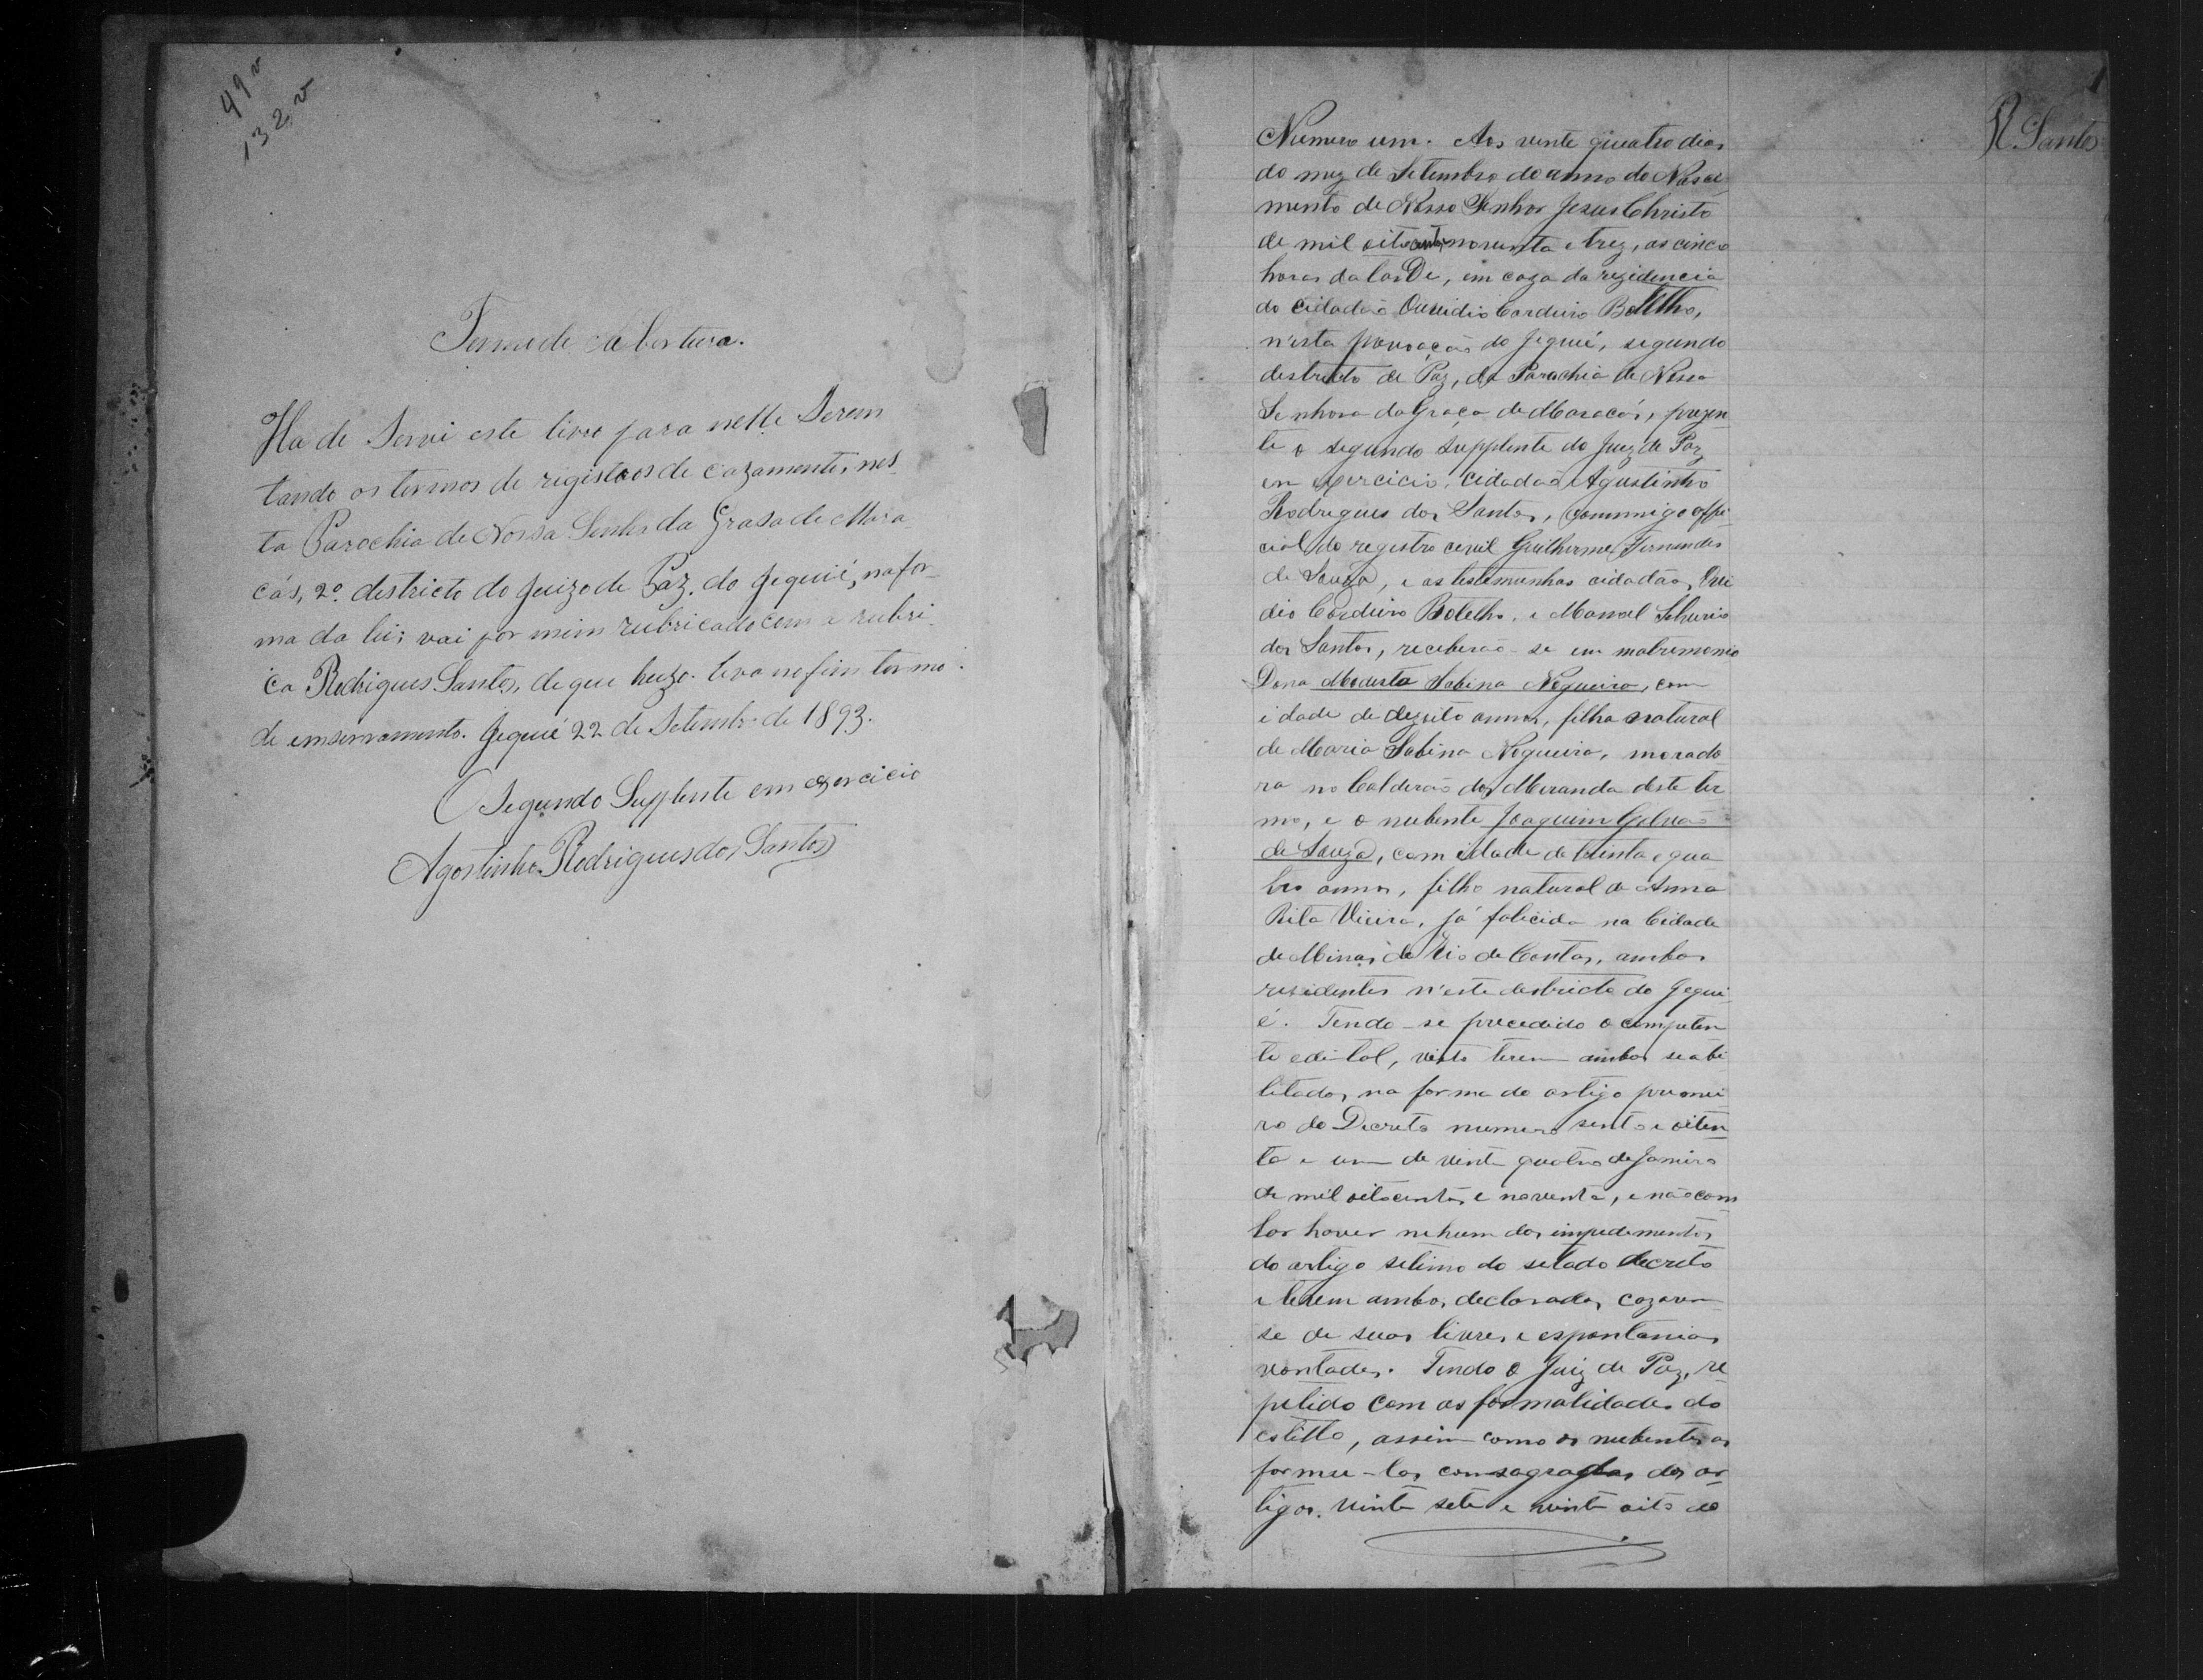 49 v
132 v
Termo de Abertura.
Ha de Servi este livro para nelle Serem
tando os termos de registros de cazamentos nes
ta Parochia de Nossa Senhra da Grasa de Mara
cás, 2º districto do Juizo de Paz. do Jequié, na for
ma da lei; vai por mim rubricado com a rubri
ca Rodrigues Santos, de que huzo. leva no fim termo
de emserramento. Jequié 22 de Setembro de 1893.
O Segundo Supplente em exercicio
Agostinho Rodrigues dos Santos
1
R. Santos
Numero um. Aos vente quatro dias
do mez de Setembro do anno do Nasci
mento de Nosso Senhor Jesus Christo
de mil oitocentos noventa e trez, as cinco
horas da tarde, em caza da rezidencia
do Cidadão Ouvidio Cordeiro Botelho,
n'esta povoação do Jequié, segundo
destricto de Paz, da Parochia de Nossa
Senhora da Graça de Maracás, prezen
te o segundo supplente do Juiz de Paz
em exercicio, Cidadão Agustinho
Rodrigues dos Santos, commigo offi
cial do registro cevil Guilherme Fernandes
de Souza, e as testemunhas cidadãos, Ovi
dio Cordeiro Botelho, e Manoel
dos Santos, receberão-se em matremonio
Dona Modesta Sabina Nogueira, com
idade de dezoito annos, filha natural
de Maria Sabina Nogueira, morado
ra no Calderão dos Meranda deste ter
mo, e o nubente Joaquim Galvão
de Souza, com idade de trinta e qua
tro annos, filho natural de Anna
Rita Vieira, já falicida na Cidade
de Minas do Rio de Contas, ambos
residentes n'este destricto do Jequi
é. Tendo-se precedido o competen
te edital, visto terem ambos se abi
litados, na forma do artigo primei
ro do Decreto numero sento e oiten
ta e um de vinte quatro de Janeiro
de mil oitocentos e noventa, e não com
tar haver nehum dos impedementos
do artigo setimo do setado decreto
e terem ambos, declarados, cazarem
se de suas livres e espontanias
vontades. Tendo o Juiz de Paz, re
petido com as formalidades do
estillo, assim como os nubentes as
formu-las consagradas dos ar
tigos. vinte sete e vinte oito do